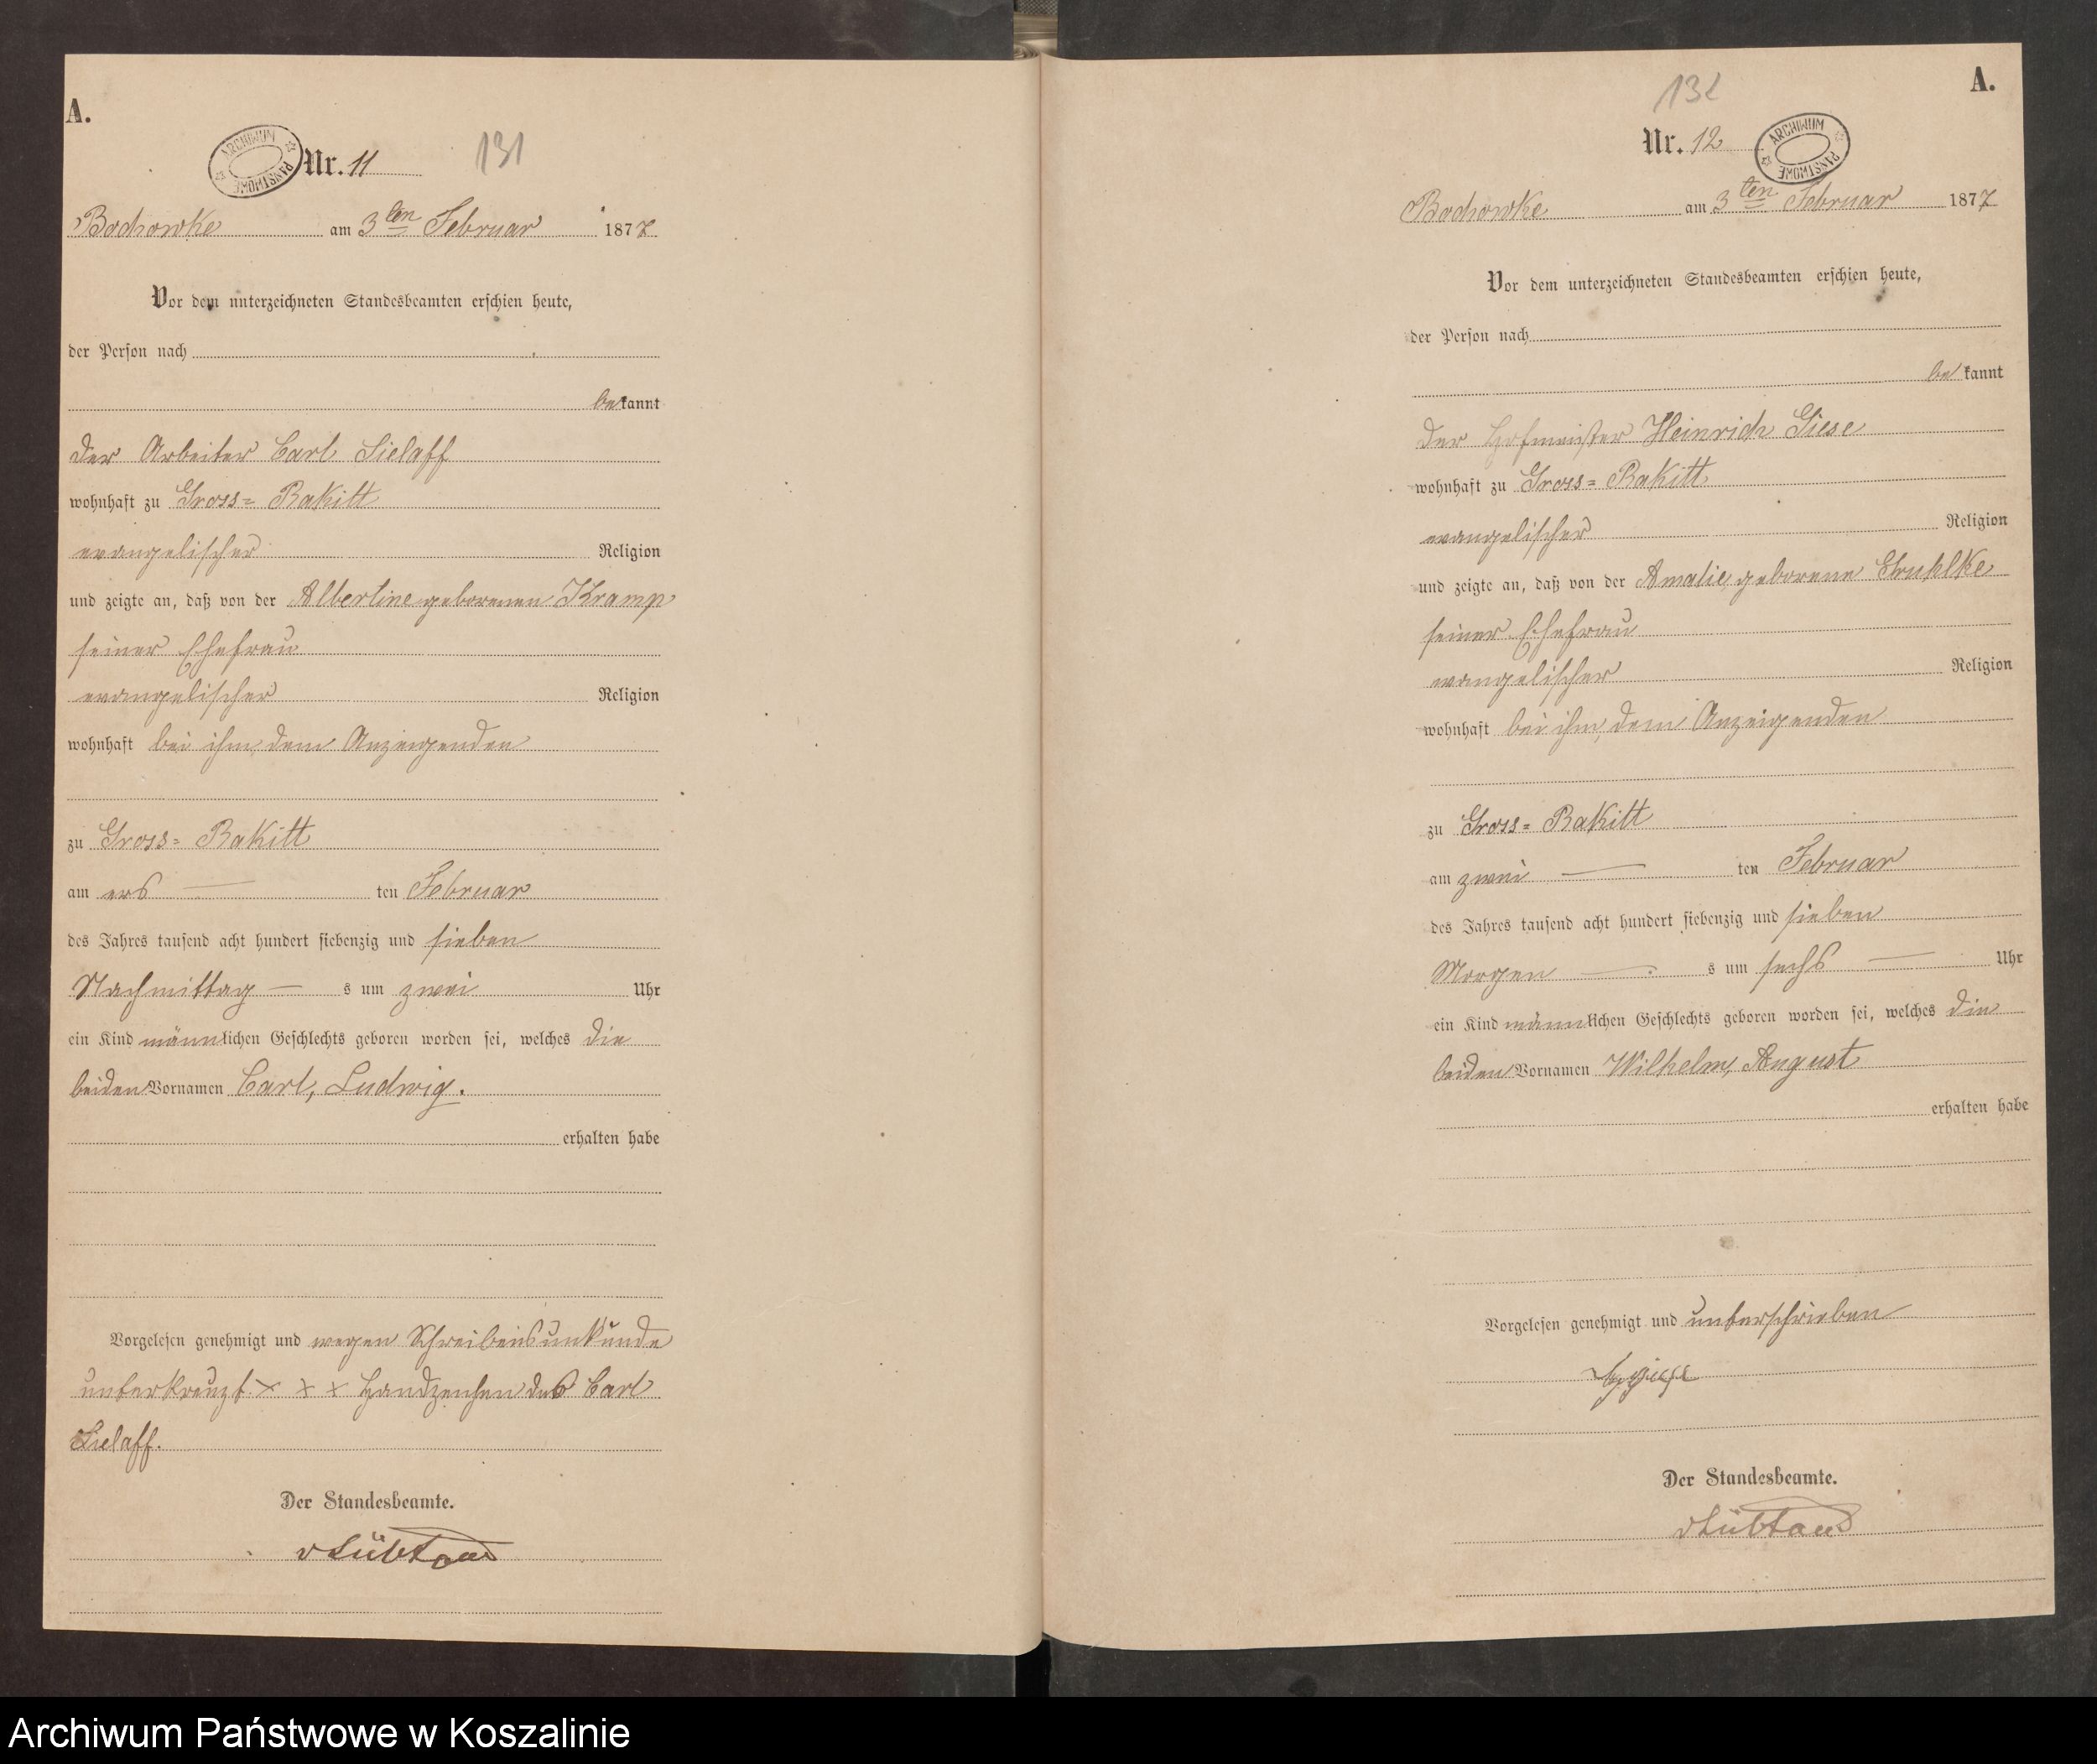 A.
ARCHIWUM PAŃSTWOWE
Nr. 11
131
Bochowke am 3ten Februar 1877
Vor dem unterzeichneten Standesbeamten erschien heute,
der Person nach
bekannt
der Arbeiter Carl Sielaff
wohnhaft zu Gross= Rakitt
evangelischer Religion
und zeigte an, daß von der Albertine geborenen Kramp
seiner Ehefrau
evangelischer Religion
wohnhaft bei ihm, dem Anzeigenden
zu Gross= Rakitt
am ers — ten Februar
des Jahres tausend acht hundert siebenzig und sieben
Nachmittag — s um zwei Uhr
ein Kind männlichen Geschlechts geboren worden sei, welches die
beiden Vornamen Carl, Ludwig.
erhalten habe
Vorgelesen genehmigt und wegen Schreibensunkunde
unterkreuzt. x x x Handzeichen des Carl
Sielaff.
Der Standesbeamte.
132
A.
Nr. 12
ARCHIWUM PAŃSTWOWE
Bochowke am 3ten Februar 1877
Vor dem unterzeichneten Standesbeamten erschien heute,
der Person nach
bekannt
der Hofmeister Heinrich Giese
wohnhaft zu Gross= Rakitt
evangelischer Religion
und zeigte an, daß von der Amalie, geborene Gruhlke
seiner Ehefrau
evangelischer Religion
wohnhaft bei ihm, dem Anzeigenden
zu Gross= Rakitt
am zwei — ten Februar
des Jahres tausend acht hundert siebenzig und sieben
Morgen — s um sechs — Uhr
ein Kind männlichen Geschlechts geboren worden sei, welches die
beiden Vornamen Wilhelm, August
erhalten habe
Vorgelesen genehmigt und unterschrieben
Giese
Der Standesbeamte.
Archiwum Państwowe w Koszalinie